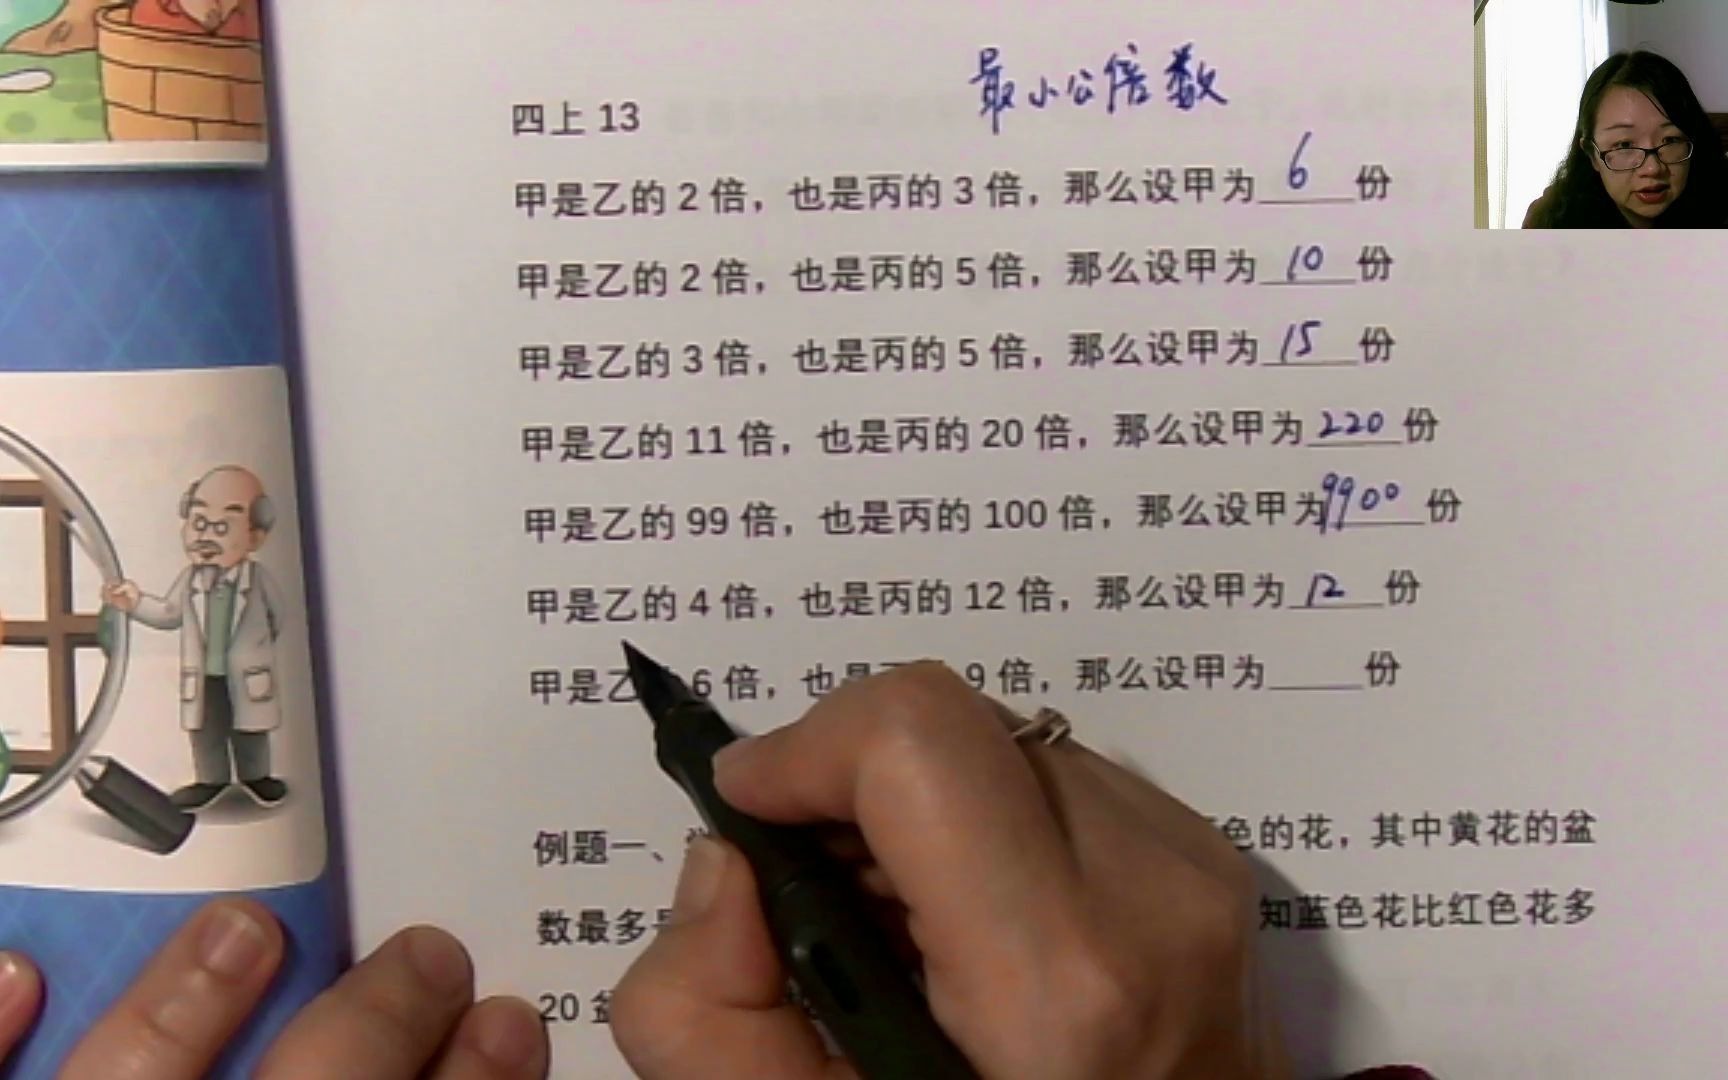 最小公倍数
四上 13
甲是乙的 2 倍，也是丙的 3 倍，那么设甲为 6 份
甲是乙的 2 倍，也是丙的 5 倍，那么设甲为 10 份
甲是乙的 3 倍，也是丙的 5 倍，那么设甲为 15 份
甲是乙的 11 倍，也是丙的 20 倍，那么设甲为 220 份
甲是乙的 99 倍，也是丙的 100 倍，那么设甲为 9900 份
甲是乙的 4 倍，也是丙的 12 倍，那么设甲为 12 份
甲是乙 6 倍，也是 9 倍，那么设甲为____份
例题一、 色的花，其中黄花的盆
数最多 知蓝色花比红色花多
20 盆